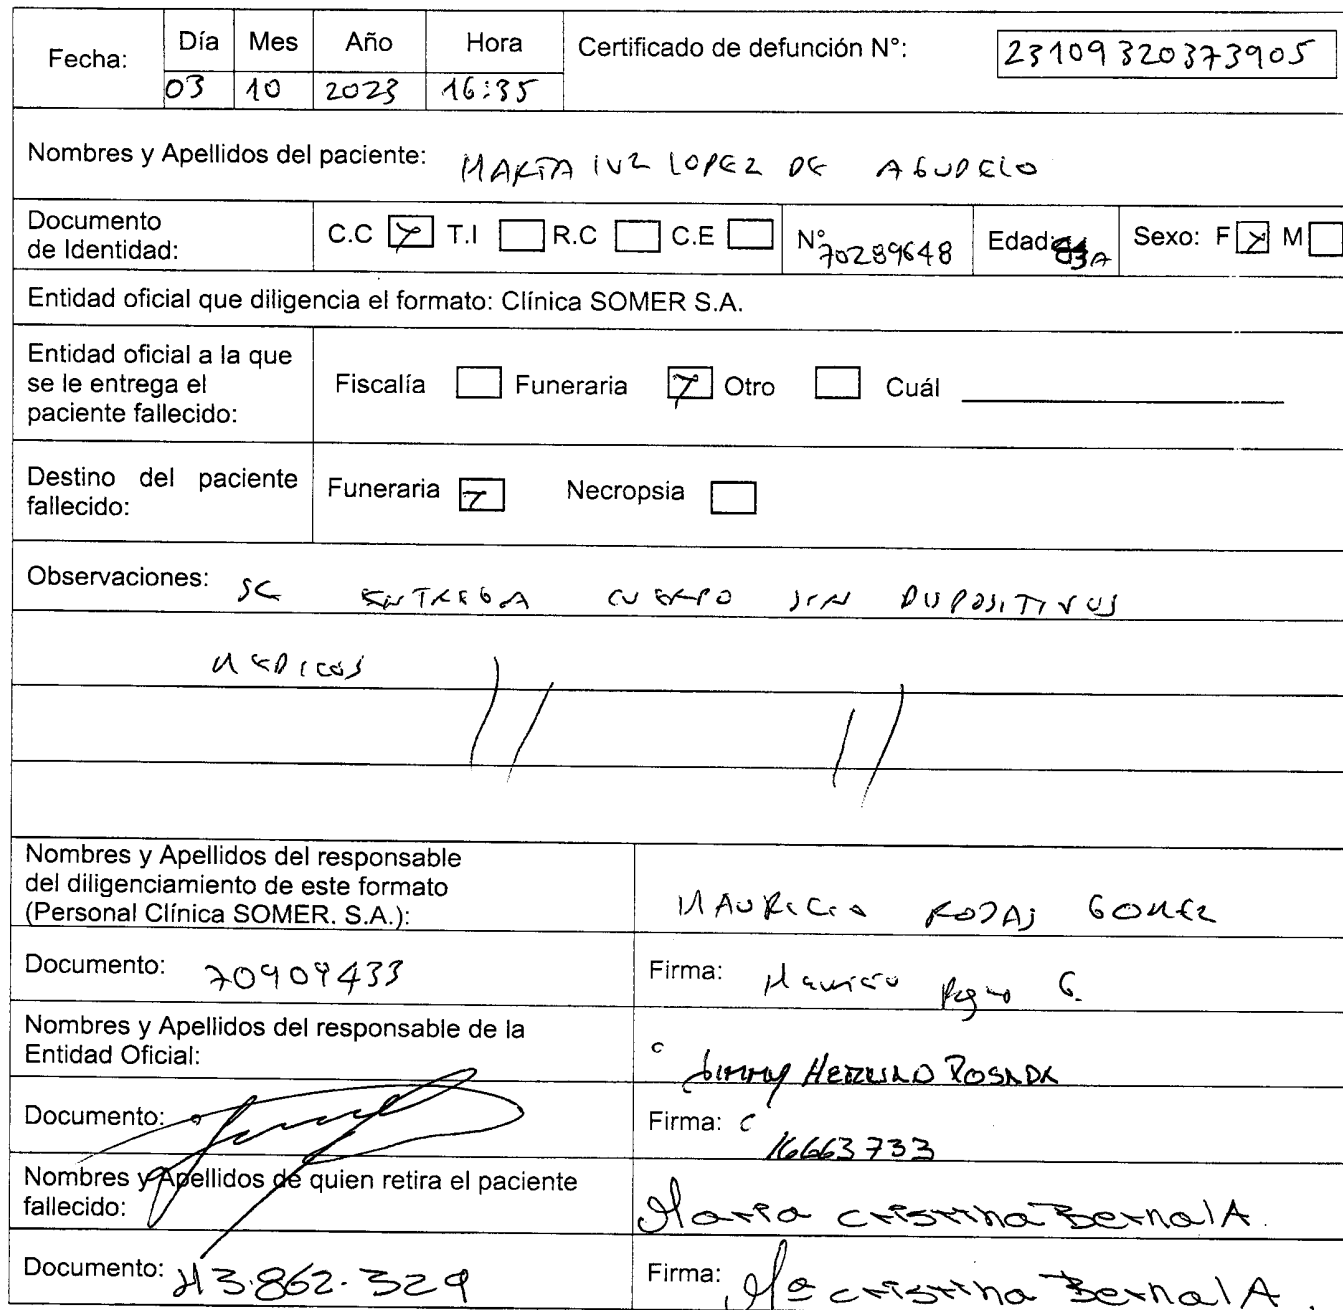 Fecha: Día Mes Año Hora Certificado de defunción N°: 23109320373905
03 10 2023 16:35
Nombres y Apellidos del paciente: MARIA LUZ LOPEZ DE AGUDELO
Documento de Identidad: C.C T.I R.C C.E N° 70289648 Edad: A Sexo: F M
Entidad oficial que diligencia el formato: Clínica SOMER S.A.
Entidad oficial a la que
se le entrega el
paciente fallecido:
Fiscalía Funeraria Otro Cuál
Destino del paciente
fallecido:
Funeraria Necropsia
Observaciones: SE ENTREGA CUERPO SIN DISPOSITIVOS
MEDICOS
Nombres y Apellidos del responsable
del diligenciamiento de este formato
(Personal Clínica SOMER. S.A.):
MAURICIO GOMEZ
Documento: 70909433 Firma: Mauricio G.
Nombres y Apellidos del responsable de la
Entidad Oficial:
POSADA
Documento: Firma: 16663733
Nombres y Apellidos de quien retira el paciente
fallecido:
Maria cristina Bernal A.
Documento: 43.862.329 Firma: Mª cristina Bernal A.